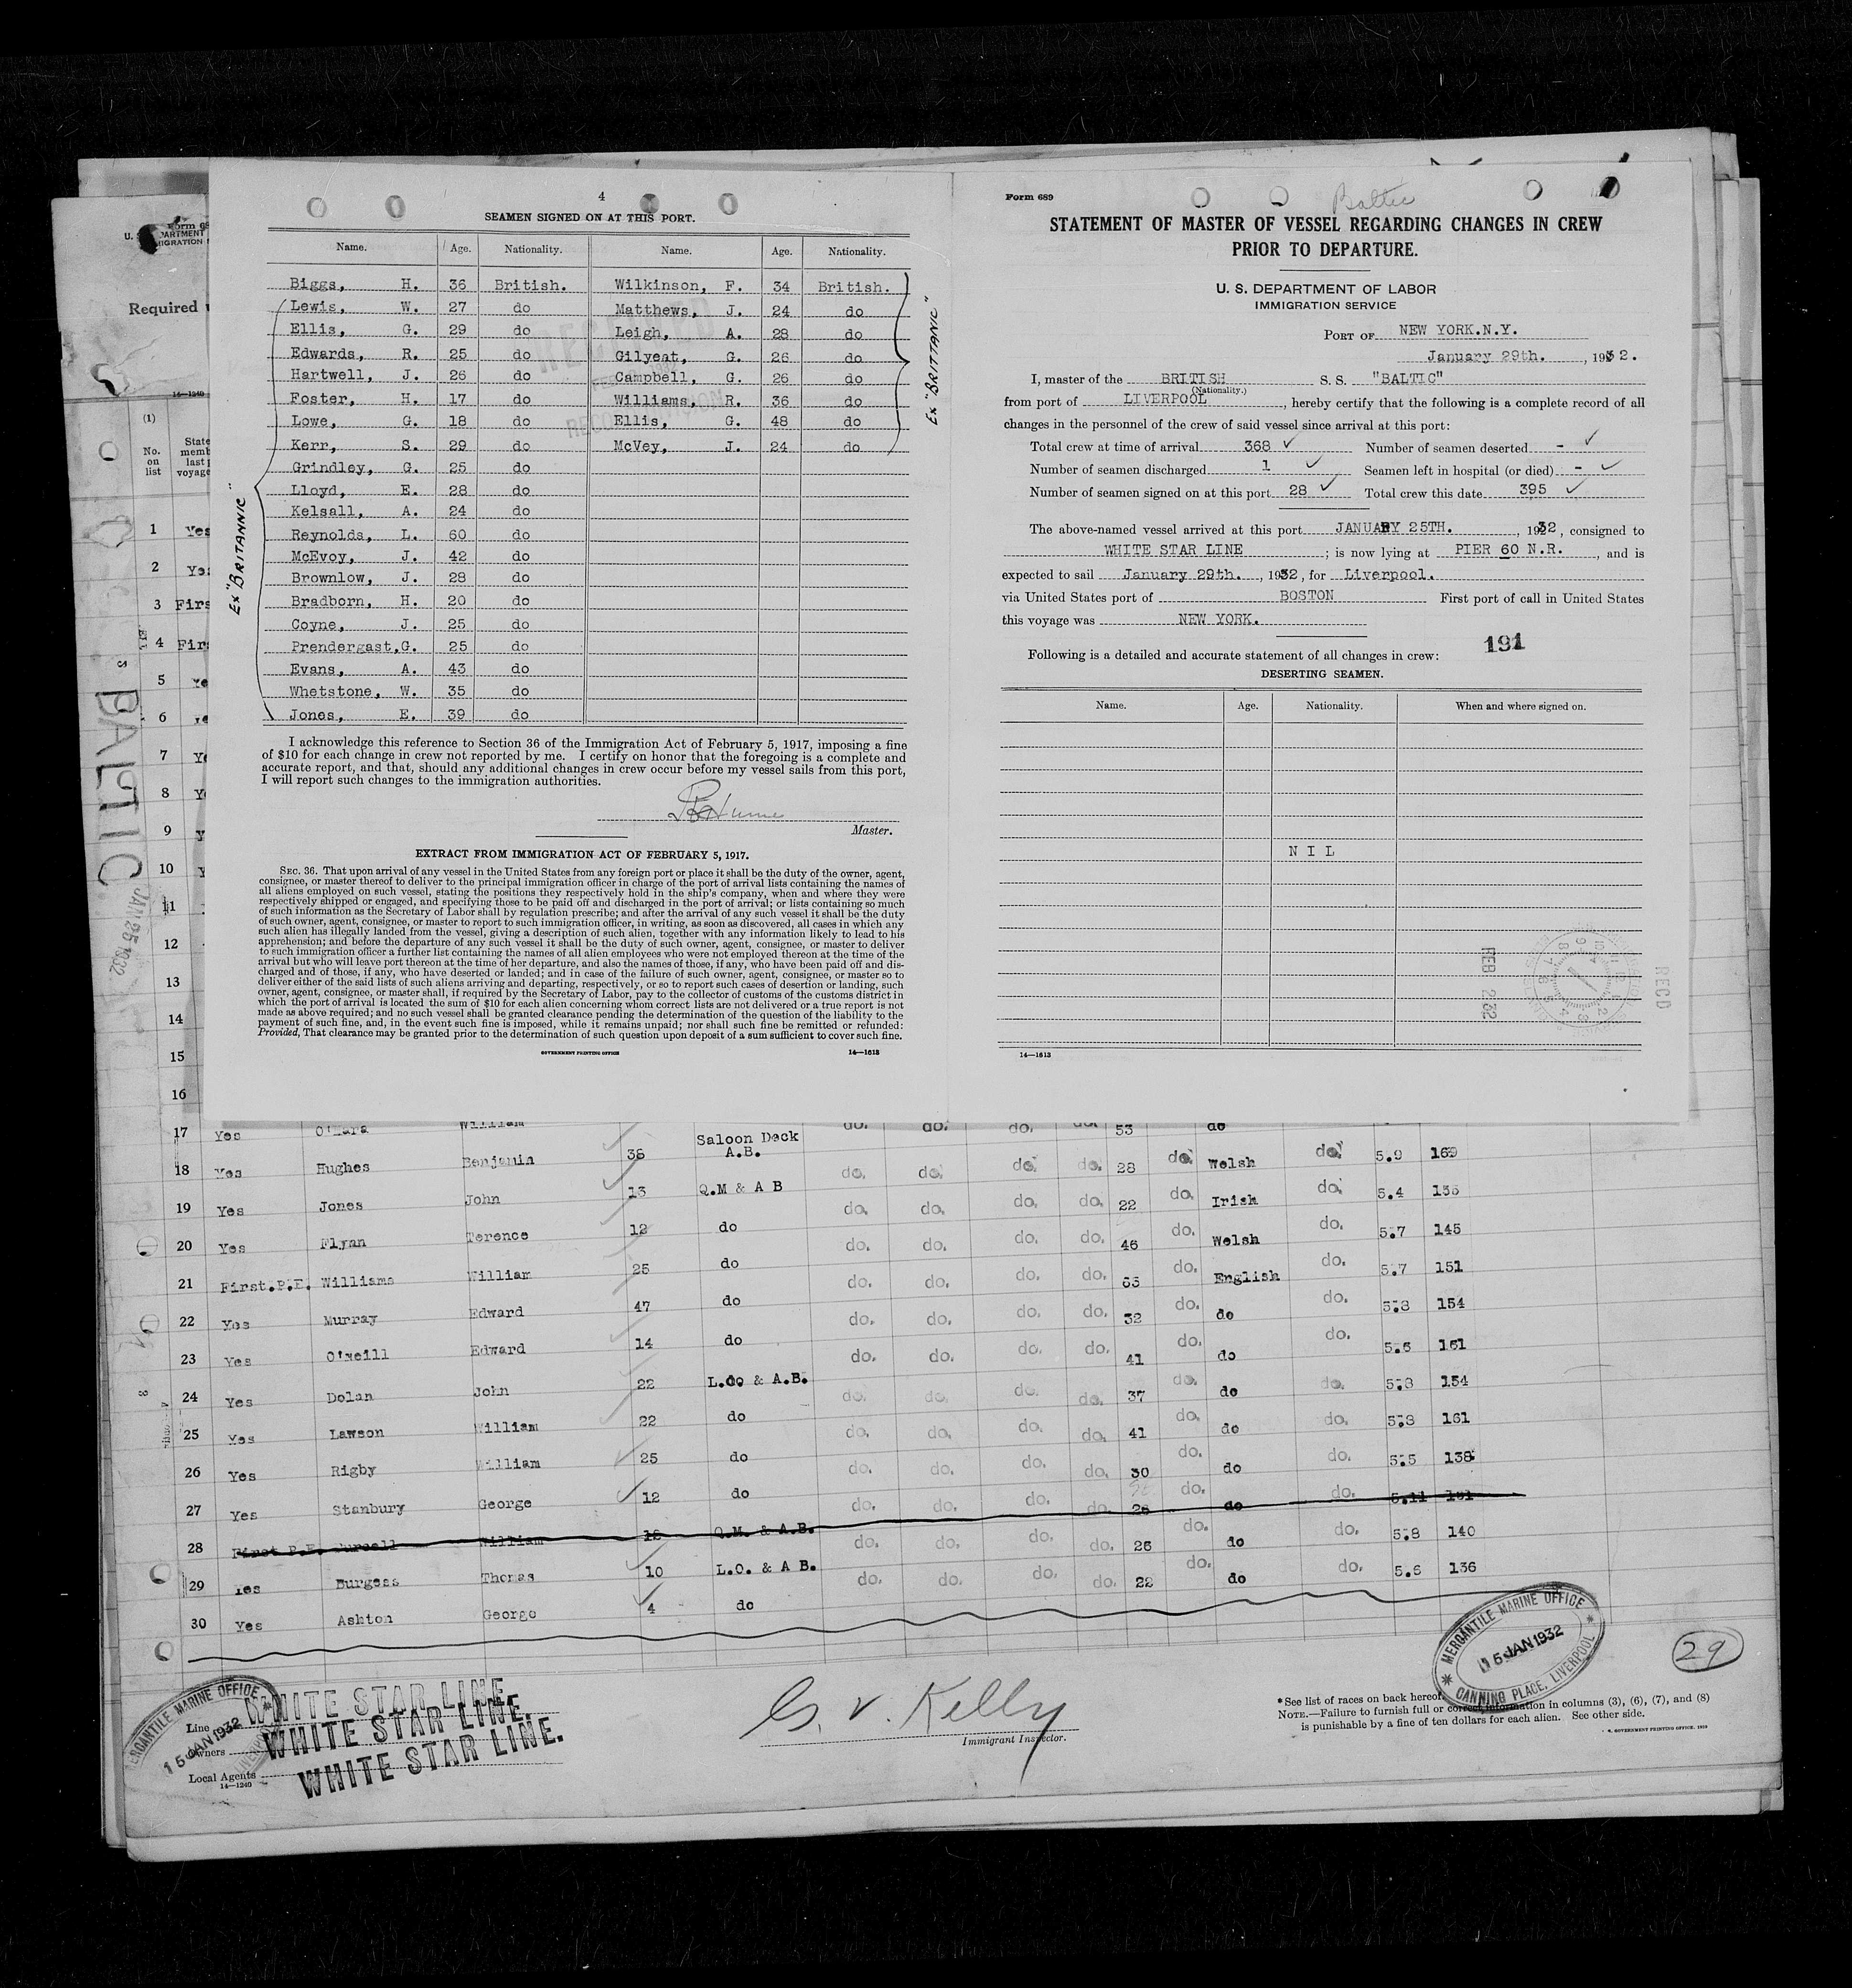 4
SEAMEN SIGNED ON AT THIS PORT.
Name. Age. Nationality. Name. Age. Nationality.
Biggs, H. 36 British. Wilkinson, F. 34 British.
Lewis, W. 27 do Matthews, J. 24 do
Ellis, G. 29 do Leigh, A. 28 do
Edwards, R. 25 do Gilyeat, G. 26 do
Hartwell, J. 26 do Campbell, G. 26 do
Foster, H. 17 do Williams, R. 36 do
Lowe, G. 18 do Ellis, G. 48 do
Kerr, S. 29 do McVey, J. 24 do
Grindley, G. 25 do
Lloyd, E. 28 do
Kelsall, A. 24 do
Reynolds, L. 60 do
McEvoy, J. 42 do
Brownlow, J. 28 do
Bradborn, H. 20 do
Coyne, J. 25 do
Prendergast, G. 25 do
Evans, A. 43 do
Whetstone, W. 35 do
Jones, E. 39 do
Ex "BRITANNIC"
Ex "BRITTANIC"
I acknowledge this reference to Section 36 of the Immigration Act of February 5, 1917, imposing a fine
of $10 for each change in crew not reported by me. I certify on honor that the foregoing is a complete and
accurate report, and that, should any additional changes in crew occur before my vessel sails from this port,
I will report such changes to the immigration authorities.
Master.
EXTRACT FROM IMMIGRATION ACT OF FEBRUARY 5, 1917.
SEC. 36. That upon arrival of any vessel in the United States from any foreign port or place it shall be the duty of the owner, agent,
consignee, or master thereof to deliver to the principal immigration officer in charge of the port of arrival lists containing the names of
all aliens employed on such vessel, stating the positions they respectively hold in the ship's company, when and where they were
respectively shipped or engaged, and specifying those to be paid off and discharged in the port of arrival; or lists containing so much
of such information as the Secretary of Labor shall by regulation prescribe; and after the arrival of any such vessel it shall be the duty
of such owner, agent, consignee, or master to report to such immigration officer, in writing, as soon as discovered, all cases in which any
such alien has illegally landed from the vessel, giving a description of such alien, together with any information likely to lead to his
apprehension; and before the departure of any such vessel it shall be the duty of such owner, agent, consignee, or master to deliver
to such immigration officer a further list containing the names of all alien employees who were not employed thereon at the time of the
arrival but who will leave port thereon at the time of her departure, and also the names of those, if any, who have been paid off and dis-
charged and of those, if any, who have deserted or landed; and in case of the failure of such owner, agent, consignee, or master so to
deliver either of the said lists of such aliens arriving and departing, respectively, or so to report such cases of desertion or landing, such
owner, agent, consignee, or master shall, if required by the Secretary of Labor, pay to the collector of customs of the customs district in
which the port of arrival is located the sum of $10 for each alien concerning whom correct lists are not delivered or a true report is not
made as above required; and no such vessel shall be granted clearance pending the determination of the question of the liability to the
payment of such fine, and, in the event such fine is imposed, while it remains unpaid; nor shall such fine be remitted or refunded:
Provided, That clearance may be granted prior to the determination of such question upon deposit of a sum sufficient to cover such fine.
GOVERNMENT PRINTING OFFICE 14—1613
Form 689
Baltic
STATEMENT OF MASTER OF VESSEL REGARDING CHANGES IN CREW
PRIOR TO DEPARTURE.
U. S. DEPARTMENT OF LABOR
IMMIGRATION SERVICE
PORT OF NEW YORK.N.Y.
January 29th. , 1932.
I, master of the BRITISH S. S. "BALTIC"
(Nationality.)
from port of LIVERPOOL, hereby certify that the following is a complete record of all
changes in the personnel of the crew of said vessel since arrival at this port:
Total crew at time of arrival 368 ✓ Number of seamen deserted - ✓
Number of seamen discharged 1 ✓ Seamen left in hospital (or died) - ✓
Number of seamen signed on at this port 28 ✓ Total crew this date 395 ✓
The above-named vessel arrived at this port JANUARY 25TH. , 1932, consigned to
WHITE STAR LINE ; is now lying at PIER 60 N.R. , and is
expected to sail January 29th. , 1932, for Liverpool.
via United States port of BOSTON First port of call in United States
this voyage was NEW YORK.
191
Following is a detailed and accurate statement of all changes in crew:
DESERTING SEAMEN.
Name. Age. Nationality. When and where signed on.
N I L
FEB 2 32
RECD
14—1613
Required
14—1240
(1)
No. on list
State
BALTIC
JAN 25 1932
1 Yes
2 Yes
3 Firs
4 Firs
5 Ye
6
7 Ye
8 Y
9 Y
10 Y
11
12
13
14
15
16
17 Yes O'Mara William do. do. do. do. 53 do
18 Yes Hughes Benjamin 36 Saloon Deck A.B. do. do. do. do. 28 do. Welsh do. 5.9 169
19 Yes Jones John 13 Q.M & A B do. do. do. do. 22 do. Irish do. 5.4 136
20 Yes Flynn Terence 12 do do. do. do. do. 46 do. Welsh do. 5.7 145
21 First.P.E. Williams William 25 do do. do. do. do. 55 do. English do. 5.7 151
22 Yes Murray Edward 47 do do. do. do. do. 32 do. do do. 5.8 154
23 Yes O'Neill Edward 14 do do. do. do. do. 41 do. do do. 5.6 161
24 Yes Dolan John 22 L.O. & A.B. do. do. do. do. 37 do. do do. 5.8 154
25 Yes Lawson William 22 do do. do. do. do. 41 do. do do. 5.8 161
26 Yes Rigby William 25 do do. do. do. do. 30 do. do do. 5.5 138
27 Yes Stanbury George 12 do do. do. do. do. 26 do. do do. 5.11 151
28 First P.E. Purcell William 18 Q.M. & A.B. do. do. do. do. 26 do. do do. 5.8 140
29 Yes Burgess Thomas 10 L.O. & A B. do. do. do. do. 22 do. do do. 5.6 136
30 Yes Ashton George 4 do
MERCANTILE MARINE OFFICE
15 JAN 1932
Line WHITE STAR LINE.
Owners WHITE STAR LINE.
Local Agents WHITE STAR LINE.
14—1240
G. V. Kelly
Immigrant Inspector.
MERCANTILE MARINE OFFICE
15 JAN 1932
CANNING PLACE, LIVERPOOL
29
*See list of races on back hereof.
NOTE.—Failure to furnish full or correct information in columns (3), (6), (7), and (8)
is punishable by a fine of ten dollars for each alien. See other side.
U. S. GOVERNMENT PRINTING OFFICE